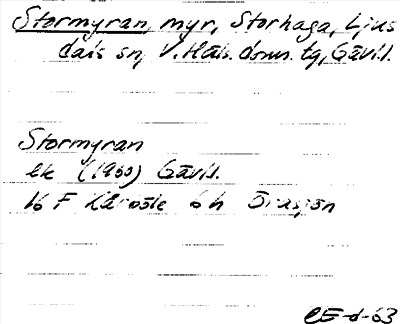 Stormyran, myr, Storhaga, Ljus
dals sn, V. Häls. doms. tg, Gävl.
Stormyran
ek (1960) Gävl.
16 F Kårböle 6 h Örasjön